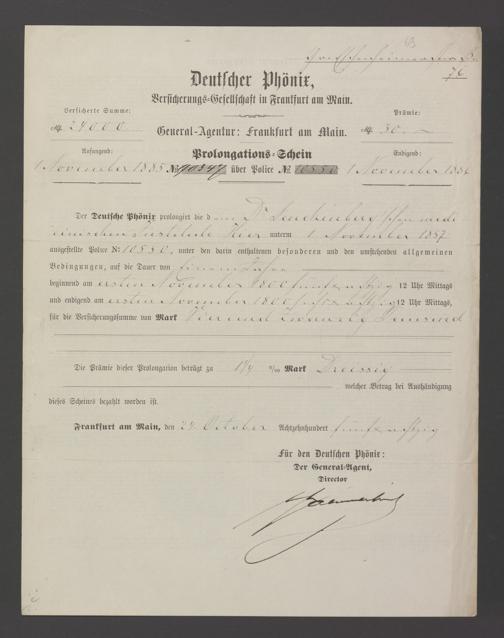 76
Deutscher Phönix,
Versicherungs-Gesellschaft in Frankfurt am Main.
Versicherte Summe:
Prämie:
24000
General-Agentur: Frankfurt am Main.
30.—
Anfangend:
Prolongations-Schein
Endigend:
1 November 1885 № über Police № 10530 1 November 188
Der Deutsche Phönix prolongirt die d Dr
unterm 1 November
ausgestellte Police № 10530, unter den darin enthaltenen besonderen und den umstehenden allgemeinen
Bedingungen, auf die Dauer von
beginnend am ersten November 1800 fünf u achtzig 12 Uhr Mittags
und endigend am ersten November 1800 achtzig 12 Uhr Mittags,
für die Versicherungssumme von Mark Vier und zwanzig Tausend
Die Prämie dieser Prolongation beträgt zu 1 1/4 ‰ Mark Dreissig
welcher Betrag bei Aushändigung
dieses Scheins bezahlt worden ist.
Frankfurt am Main, den October Achtzehnhundert fünf u achtzig
Für den Deutschen Phönix:
Der General-Agent,
Director